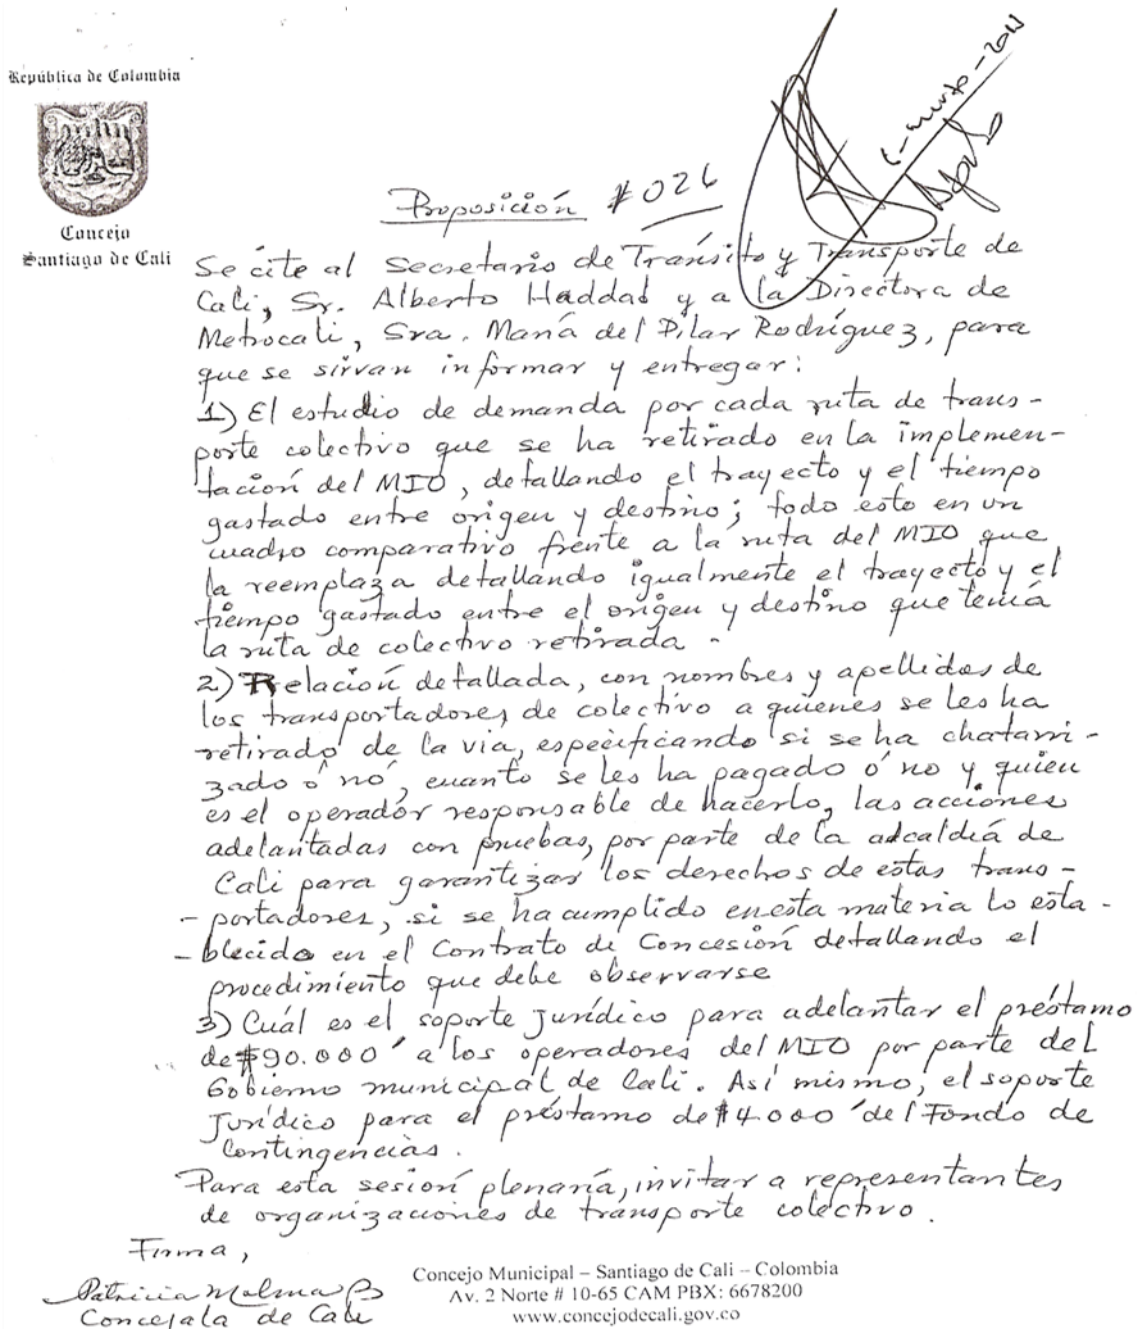 República de Colombia
Concejo
Santiago de Cali
Proposición # 026
Se cite al Secretario de Tránsito y Transporte de
Cali, Sr. Alberto Haddad y a la Directora de
Metrocali, Sra. María del Pilar Rodríguez, para
que se sirvan informar y entregar:
1) El estudio de demanda por cada ruta de trans-
porte colectivo que se ha retirado en la implemen-
tación del MIO, detallando el trayecto y el tiempo
gastado entre origen y destino; todo esto en un
cuadro comparativo frente a la ruta del MIO que
la reemplaza detallando igualmente el trayecto y el
tiempo gastado entre el origen y destino que tenía
la ruta de colectivo retirada -
2) Relación detallada, con nombres y apellidos de
los transportadores de colectivo a quienes se les ha
retirado de la via, especificando si se ha chatarri-
zado ó nó, cuanto se les ha pagado ó no y quien
es el operador responsable de hacerlo, las acciones
adelantadas con pruebas, por parte de la alcaldía de
Cali para garantizar los derechos de estos trans-
- portadores, si se ha cumplido en esta materia lo esta-
- blecido en el Contrato de Concesión detallando el
procedimiento que debe observarse
3) Cuál es el soporte jurídico para adelantar el préstamo
de $90.000' a los operadores del MIO por parte del
Gobierno municipal de Cali. Así mismo, el soporte
Jurídico para el préstamo de $4.000' del Fondo de
Contingencias.
Para esta sesión plenaria, invitar a representantes
de organizaciones de transporte colectivo.
Firma,
Patricia Molina B
Concejala de Cali
Concejo Municipal – Santiago de Cali – Colombia
Av. 2 Norte # 10-65 CAM PBX: 6678200
www.concejodecali.gov.co